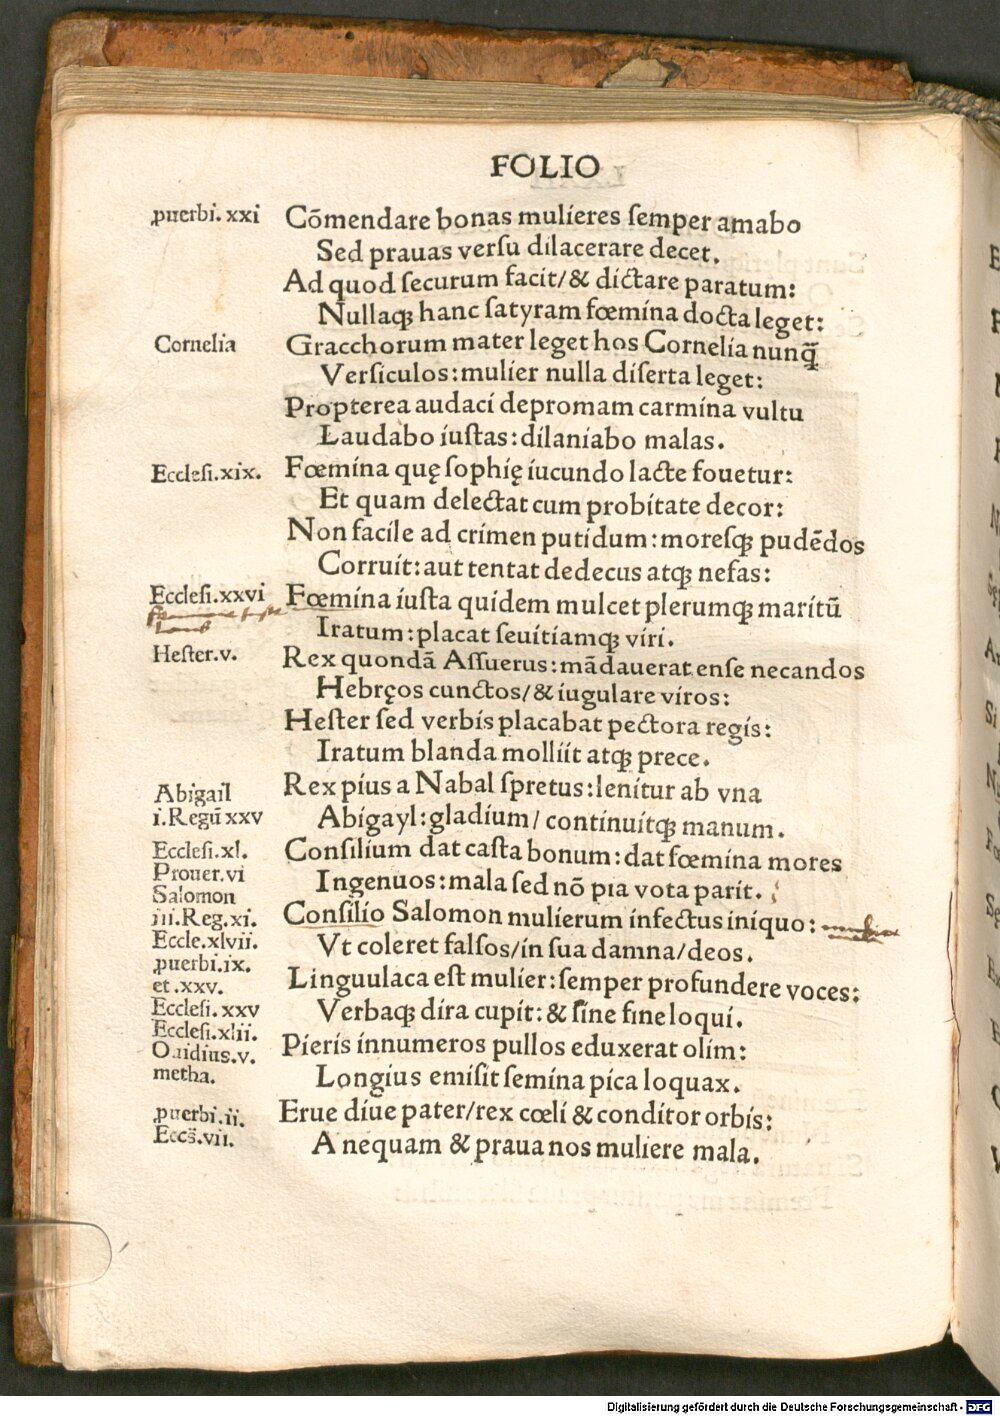 FOLIO
ꝓuerbi. xxi
Cōmendare bonas mulieres ſemper amabo
Sed prauas verſu dilacerare decet.
Ad quod ſecurum facit/& dictare paratum:
Nullaqꝫ hanc ſatyram fœmina docta leget:
Cornelia
Gracchorum mater leget hos Cornelia nunꝗ̄
Verſiculos: mulier nulla diſerta leget:
Propterea audaci depromam carmina vultu
Laudabo iuſtas: dilaniabo malas.
Eccleſi.xix.
Fœmina quę ſophię iucundo lacte fouetur:
Et quam delectat cum probitate decor:
Non facile ad crimen putidum: moreſqꝫ pudēdos
Corruit: aut tentat dedecus atqꝫ nefas:
Eccleſi.xxvi
Fœmina iuſta quidem mulcet plerumqꝫ maritū
Iratum: placat ſeuitiamqꝫ viri.
Heſter.v.
Rex quondā Aſſuerus: mādauerat enſe necandos
Hebręos cunctos/& iugulare viros:
Heſter ſed verbis placabat pectora regis:
Iratum blanda molliit atqꝫ prece.
Abigail
i.Regū xxv
Rex pius a Nabal ſpretus: lenitur ab vna
Abigayl: gladium/ continuitqꝫ manum.
Eccleſi.xl.
Prouer.vi
Conſilium dat caſta bonum: dat fœmina mores
Ingenuos: mala ſed nō pia vota parit.
Salomon
iii.Reg.xi.
Eccle.xlvii.
Conſilio Salomon mulierum infectus iniquo:
Vt coleret falſos/in ſua damna/deos.
ꝓuerbi.ix.
et.xxv.
Eccleſi.xxv
Eccleſi.xlii.
Linguulaca eſt mulier: ſemper profundere voces:
Verbaqꝫ dira cupit: & ſine fine loqui.
Ouidius.v.
metha.
Pieris innumeros pullos eduxerat olim:
Longius emiſit ſemina pica loquax.
ꝓuerbi.ii.
Eccs̄.vii.
Erue diue pater/rex cœli & conditor orbis:
A nequam & praua nos muliere mala.
Digitalisierung gefördert durch die Deutsche Forschungsgemeinschaft - DFG